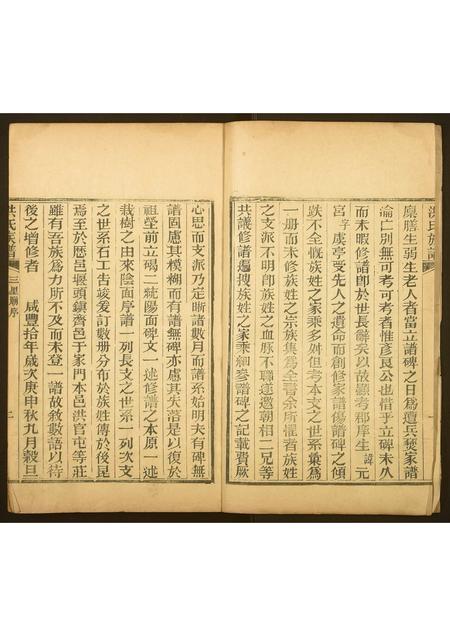 洪氏族譜
廩膳生弱生老人者當立譜碑之日爲遭兵燹家譜
淪亡別無可考可考者惟彦良公也惜乎立碑未久
而未暇修譜卽於世長辭矣以故顯考郡庠生諱元
宮字虞亭受先人之遺命而創修家譜傷譜碑之傾
跌不全慨族姓之家乘多舛但考本支之世系彙爲
一册而未修族姓之宗族集爲全書余所懼者族姓
之支派不明卽族姓之血脉不聯遂邀朝相二兄等
共議修譜遍搜族姓之家乘細參譜碑之記載費厥
心思而支派乃定晰諸數月而譜系始明夫有碑無
譜固慮其模糊而有譜無碑亦慮其失落是以復於
祖塋前立碣二統陽面碑文一述修譜之本原一述
栽樹之由來陰面序譜一列長支之世系一列次支
之世系石工告竣爰訂數册分布於族姓傳於後昆
焉至於歷邑堰頭鎮齊邑于家門本邑洪官屯等莊
雖有吾族爲力所不及而未登一譜故敘數語以待
後之增修者　咸豐拾年歲次庚申秋九月穀旦
洪氏族譜　三里聯序　二